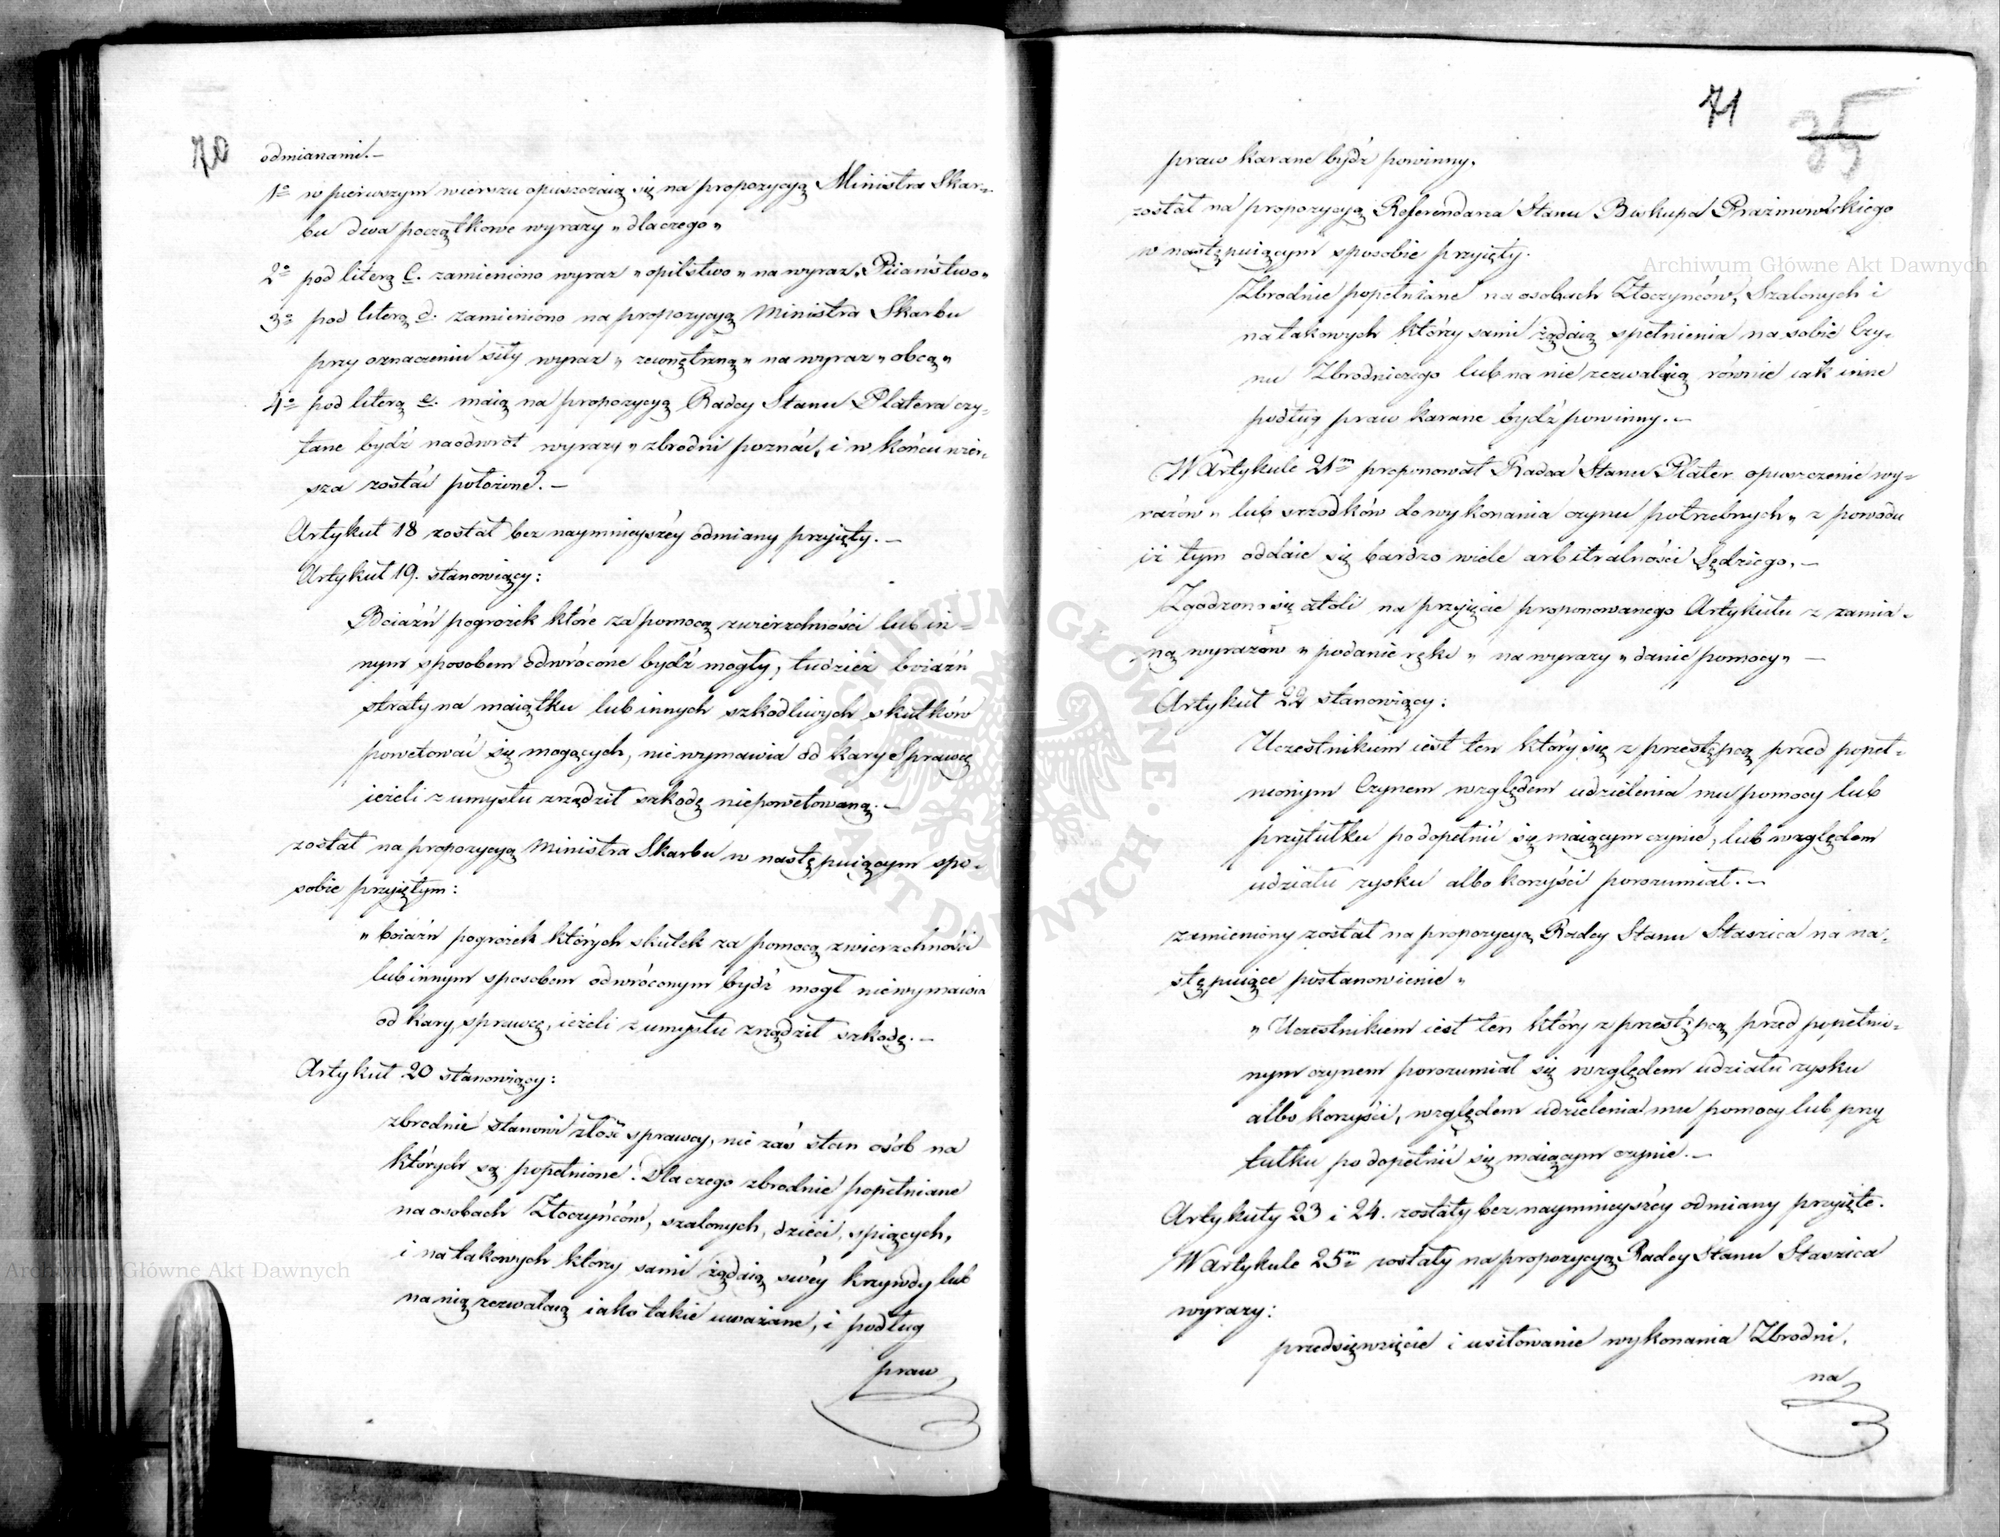 70
odmianami.—
1o w pierwszym wierszu opuszczaią się na propozycyą Ministra Skar-
bu dwa początkowe wyrazy „dlaczego„
2o pod literą C. zamieniono wyraz „opilstwo„ na wyraz „Piiaństwo„
3o pod literą d. zamieniono na propozycyą Ministra Skarbu
przy oznaczeniu siły wyraz „zewnętrzną„ na wyraz „obcą„
4o pod literą e. maią na propozycyą Radcy Stanu Platera czy-
tane bydź naodwrót wyrazy „zbrodni poznać, i w końcu wier-
sza zostać położone.—
Artykuł 18 został bez naymnieyszéy odmiany przyięty.—
Artykuł 19. stanowiący:
Boiaźń pogrożek które za pomocą zwierzchności lub in-
nym sposobem odwrócone bydź mogły, tudzież boiaźń
straty na maiątku lub innych szkodliwych skutków
powetować się mogących, nie wymawia od kary Sprawcę
ieżeli z umysłu zrządził szkodę niepowetowaną.—
został na propozycyą Ministra Skarbu w następuiącym spo-
sobie przyiętym:
„boiaźń pogrożek których skutek za pomocą zwierzchności
lub innym sposobem odwróconym bydź mogł niewymawia
od kary sprawcę, ieżeli z umysłu zrządził szkodę.—
Artykuł 20 stanowiący:
zbrodnie stanowi złość sprawcy, nie zaś stan osób na
których są popełnione. Dlaczego zbrodnie popełniane
na osobach Złoczyńców, szalonych, dzieci, spiących,
i na takowych którzy sami żądaią swéy krzywdy lub
na nią zezwalaią iako takie uważane, i podług
praw
Archiwum Główne Akt Dawnych
71
35
praw karane bydź powinny.
został na propozycyą Referendarza Stanu Biskupa Prażmowskiego
w następuiącym sposobie przyięty.
Zbrodnie popełniane na osobach Złoczyńców, Szalonych i
na takowych którzy sami żądaią spełnienia na sobie Czy-
nu Zbrodniczego lub na nie zezwalaią równie iak inne
podług praw karane bydź powinny.—
W Artykule 21m proponował Radca Stanu Plater opuszczenie wy-
razów „lub srzodków do wykonania czynu potrzebnych„ z powodu
iż tym oddaie się bardzo wiele arbitralności Sędziego.—
Zgodzono się atoli na przyięcie proponowanego Artykułu z zamia-
ną wyrazów „podanie ręki„ na wyrazy „danie pomocy„—
Artykuł 22 stanowiący:
Uczestnikiem iest ten który się z przestępcą przed popeł-
nionym Czynem względem udzielenia mu pomocy lub
przytułku po dopełnić się maiącym czynie, lub względem
udziału zysku albo korzyści porozumiał.—
zamieniony został na propozycyą Radcy Stanu Staszica na na-
stępuiące postanowienie„
„Uczestnikiem iest ten który z przestępcą przed popełnio-
nym czynem porozumiał się względem udziału zysku
albo korzyści, względem udzielenia mu pomocy lub przy
tułku po dopełnić się maiącym czynie.—
Artykuły 23 i 24. zostały bez naymnieyszéy odmiany przyięte.
W Artykule 25m zostały na propozycyą Radcy Stanu Staszica
wyrazy:
przedsięwzięcie i usiłowanie wykonania Zbrodni,
na
Archiwum Główne Akt Dawnych
ARCHIWUM GŁÓWNE · AKT DAWNYCH ·